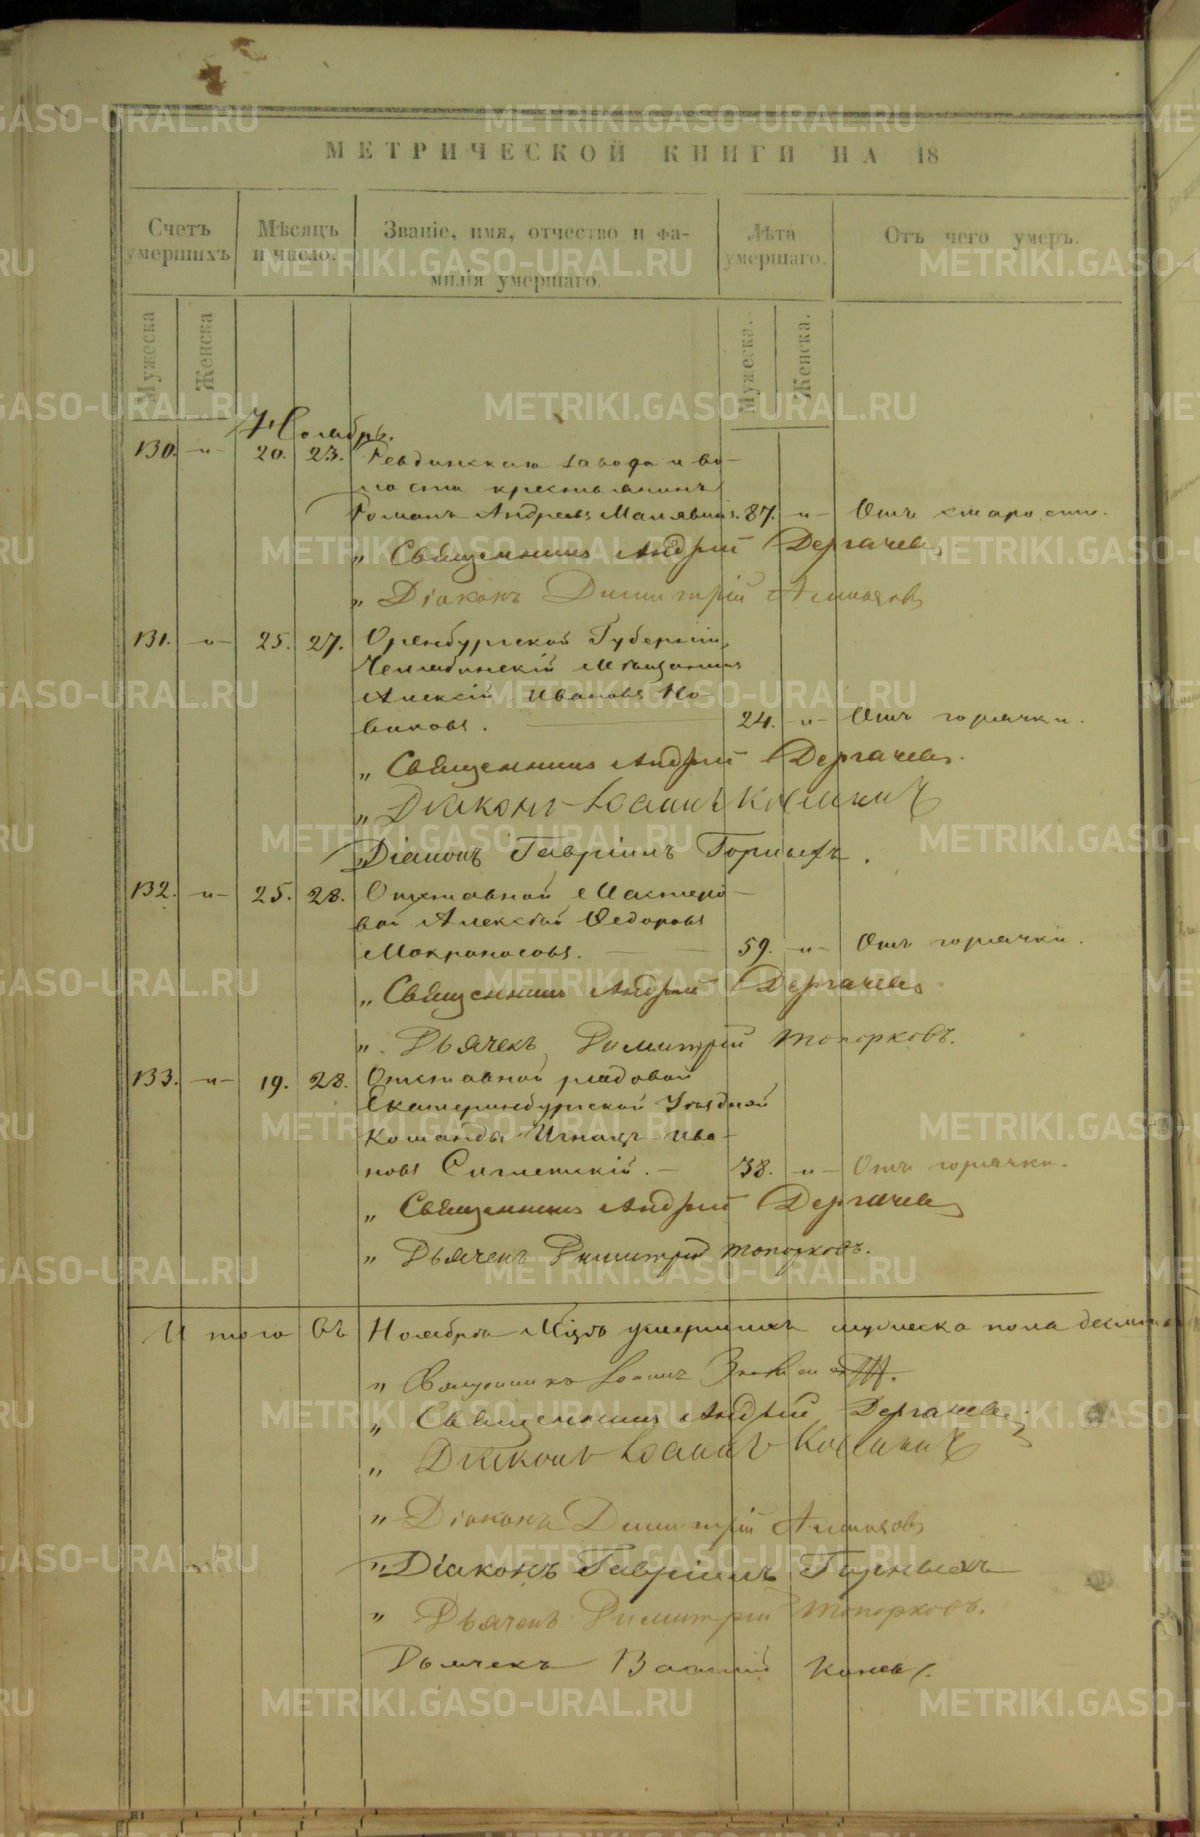 МЕТРИЧЕСКОЙ КНИГИ НА 18
Счетъ умершихъ
Мѣсяцъ и число.
Званіе, имя, отчество и фамилія умершаго.
Лѣта умершаго.
Отъ чего умеръ.
Мужеска
Женска
Мужеска.
Женска.
Ноябрь.
130. -„- 20. 23. Ревдинскаго завода и во-
лости крестьянинъ
Романъ Андреевъ Малявинъ. 87. „- Отъ старости.
„ Священникъ Андрей Дергачевъ
„ Діаконъ Димитрій
131. -„- 25. 27. Оренбургской Губерніи,
Челябинскій Мѣщанинъ
Алексій Ивановъ Но-
виковъ. 24. „- Отъ горячки.
„ Священникъ Андрей Дергачевъ.
„ Діаконъ Іоаннъ
„ Діаконъ Гавріилъ Горныхъ.
132. -„- 25. 28. Отставной Мастеро-
вой Алексѣй Ѳедоровъ
Мокроносовъ. 59. „- Отъ горячки.
„ Священникъ Андрей Дергачевъ
„ Дьячекъ Димитрій Топорковъ.
133. -„- 19. 28. Отставной рядовой
Екатеринбургской Уѣздной
Команды Игнатъ Ива-
новъ 38. „- Отъ горячки.
„ Священникъ Андрей Дергачевъ
„ Дьячекъ Димитрій Топорковъ.
Итого въ Ноябрѣ Мцѣ умершихъ мужеска пола
„ Священникъ Іоаннъ
„ Священникъ Андрей Дергачевъ
„ Діаконъ Іоаннъ
„ Діаконъ Димитрій
„ Діаконъ Гавріилъ Горныхъ
„ Дьячекъ Димитрій Топорковъ.
Дьячекъ Василій Коневъ.
METRIKI.GASO-URAL.RU